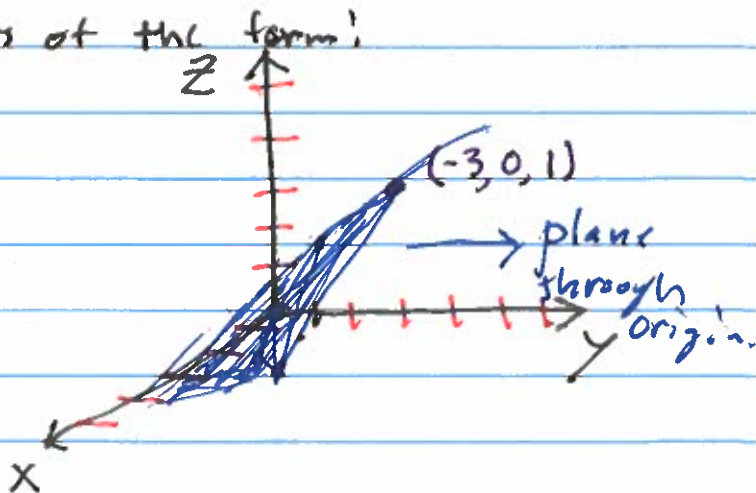 of the form:
Z
(-3, 0, 1)
plane
through
origin.
y
X